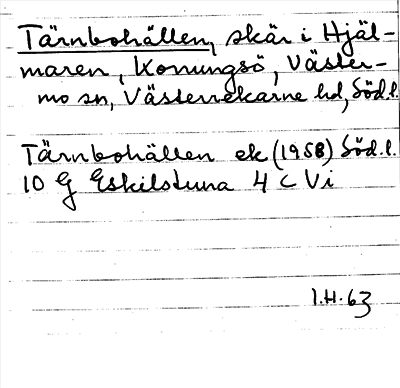 Tärnbohällen, skär i Hjäl-
maren, Konungsö, Väster-
mo sn, Västerrekarne hd, Söd.l.
Tärnbohällen ek (1958) Söd.l.
10 G Eskilstuna 4 c Vi
I.H.63